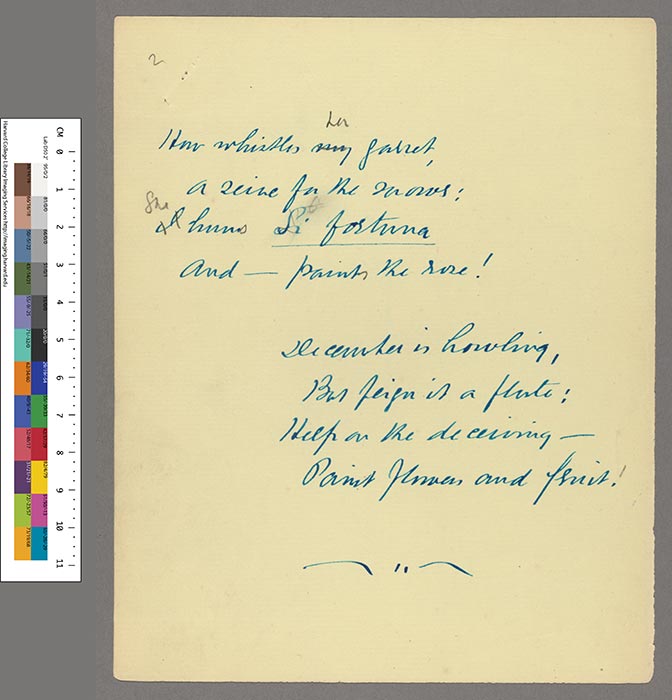 2
her
How whistles my garret,
A seine for the snows:
She
I hums Si fortuna
And — paints the rose!
December is howling,
But feign it a flute:
Help on the deceiving —
Paint flowers and fruit!
CM 0 1 2 3 4 5 6 7 8 9 10 11
Harvard College Library Imaging Services http://imaging.harvard.edu